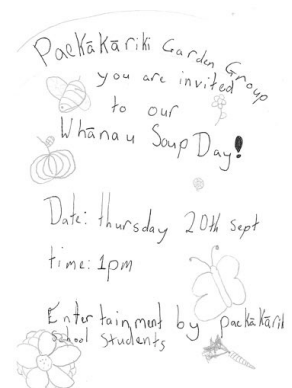 Paekākāriki Garden Group
you are invited
to our
Whānau Soup Day!
Date: thursday 20th sept
time: 1pm
Entertainment by paekākāriki
School students